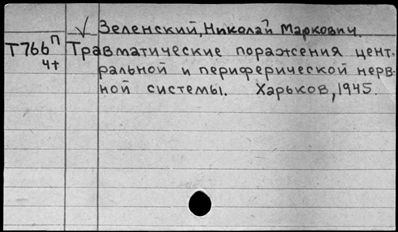 √ Зеленский, Николай Маркович.
Т766 П Травматические поражения цент-
4+ ральной и периферической нерв-
ной системы. Харьков, 1945.